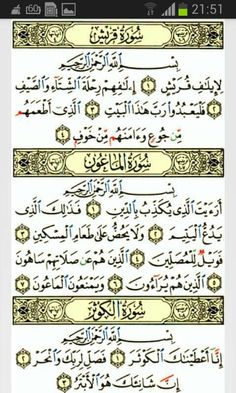 21:51
سُورَةُ قُرَيْشٍ
بِسْمِ ٱللَّهِ ٱلرَّحْمَٰنِ ٱلرَّحِيمِ
لِإِيلَٰفِ قُرَيْشٍ ١ إِۦلَٰفِهِمْ رِحْلَةَ ٱلشِّتَآءِ وَٱلصَّيْفِ
٢ فَلْيَعْبُدُوا۟ رَبَّ هَٰذَا ٱلْبَيْتِ ٣ ٱلَّذِىٓ أَطْعَمَهُم
مِّن جُوعٍ وَءَامَنَهُم مِّنْ خَوْفٍۭ ٤
سُورَةُ المَاعُونِ
بِسْمِ ٱللَّهِ ٱلرَّحْمَٰنِ ٱلرَّحِيمِ
أَرَءَيْتَ ٱلَّذِى يُكَذِّبُ بِٱلدِّينِ ١ فَذَٰلِكَ ٱلَّذِى
يَدُعُّ ٱلْيَتِيمَ ٢ وَلَا يَحُضُّ عَلَىٰ طَعَامِ ٱلْمِسْكِينِ ٣
فَوَيْلٌ لِّلْمُصَلِّينَ ٤ ٱلَّذِينَ هُمْ عَن صَلَاتِهِمْ سَاهُونَ
٥ ٱلَّذِينَ هُمْ يُرَآءُونَ ٦ وَيَمْنَعُونَ ٱلْمَاعُونَ ٧
سُورَةُ الكَوْثَرِ
بِسْمِ ٱللَّهِ ٱلرَّحْمَٰنِ ٱلرَّحِيمِ
إِنَّآ أَعْطَيْنَٰكَ ٱلْكَوْثَرَ ١ فَصَلِّ لِرَبِّكَ وَٱنْحَرْ ٢
إِنَّ شَانِئَكَ هُوَ ٱلْأَبْتَرُ ٣